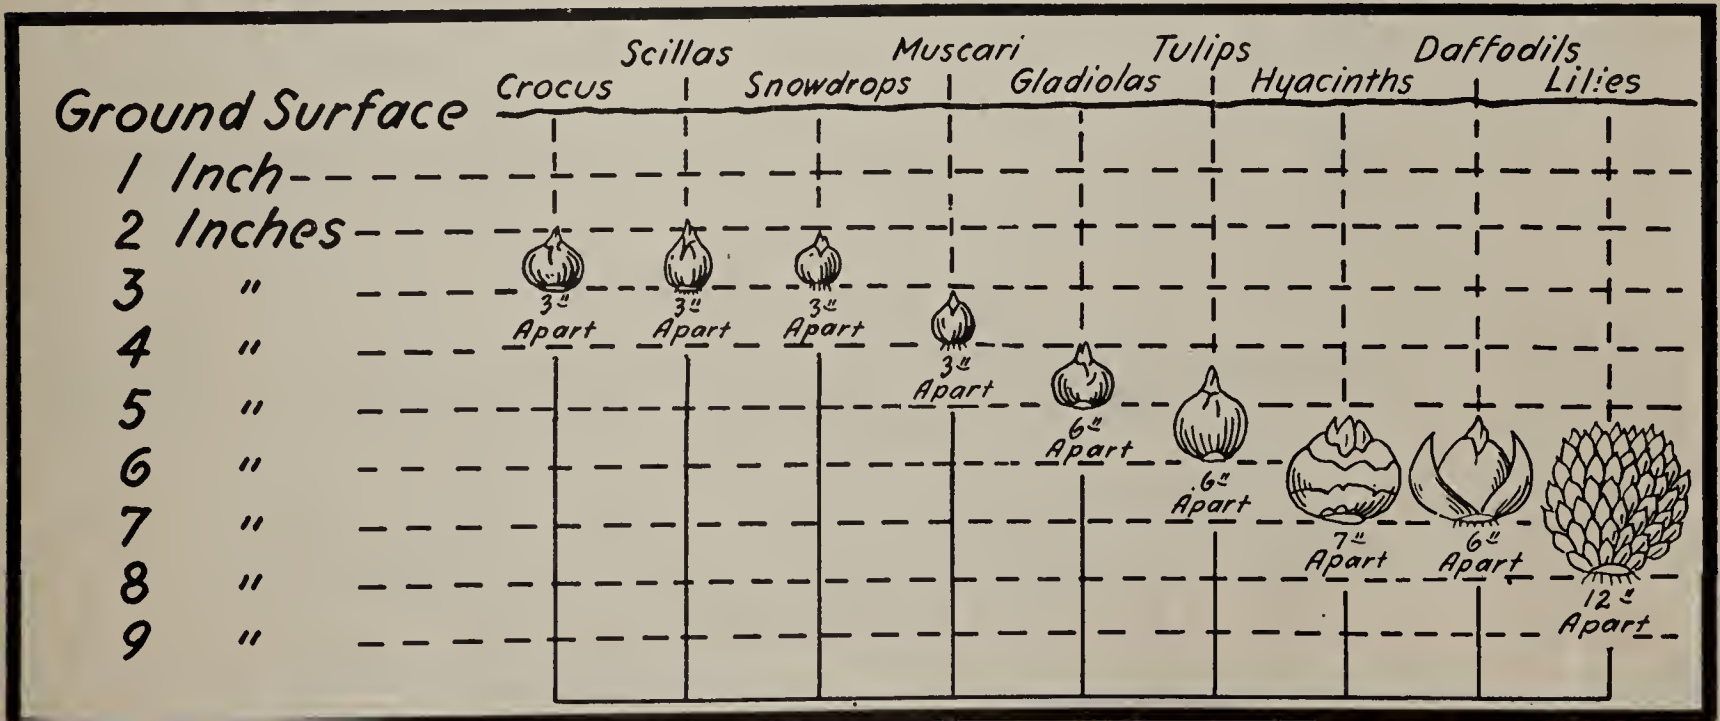 Scillas Muscari Tulips Daffodils
Crocus Snowdrops Gladiolas Hyacinths Lilies
Ground Surface
1 Inch
2 Inches
3 "
3" 3" 3"
Apart Apart Apart
4 "
3"
Apart
5 "
6"
Apart
6 "
6"
Apart
7 "
7" 6"
Apart Apart
8 "
12"
Apart
9 "